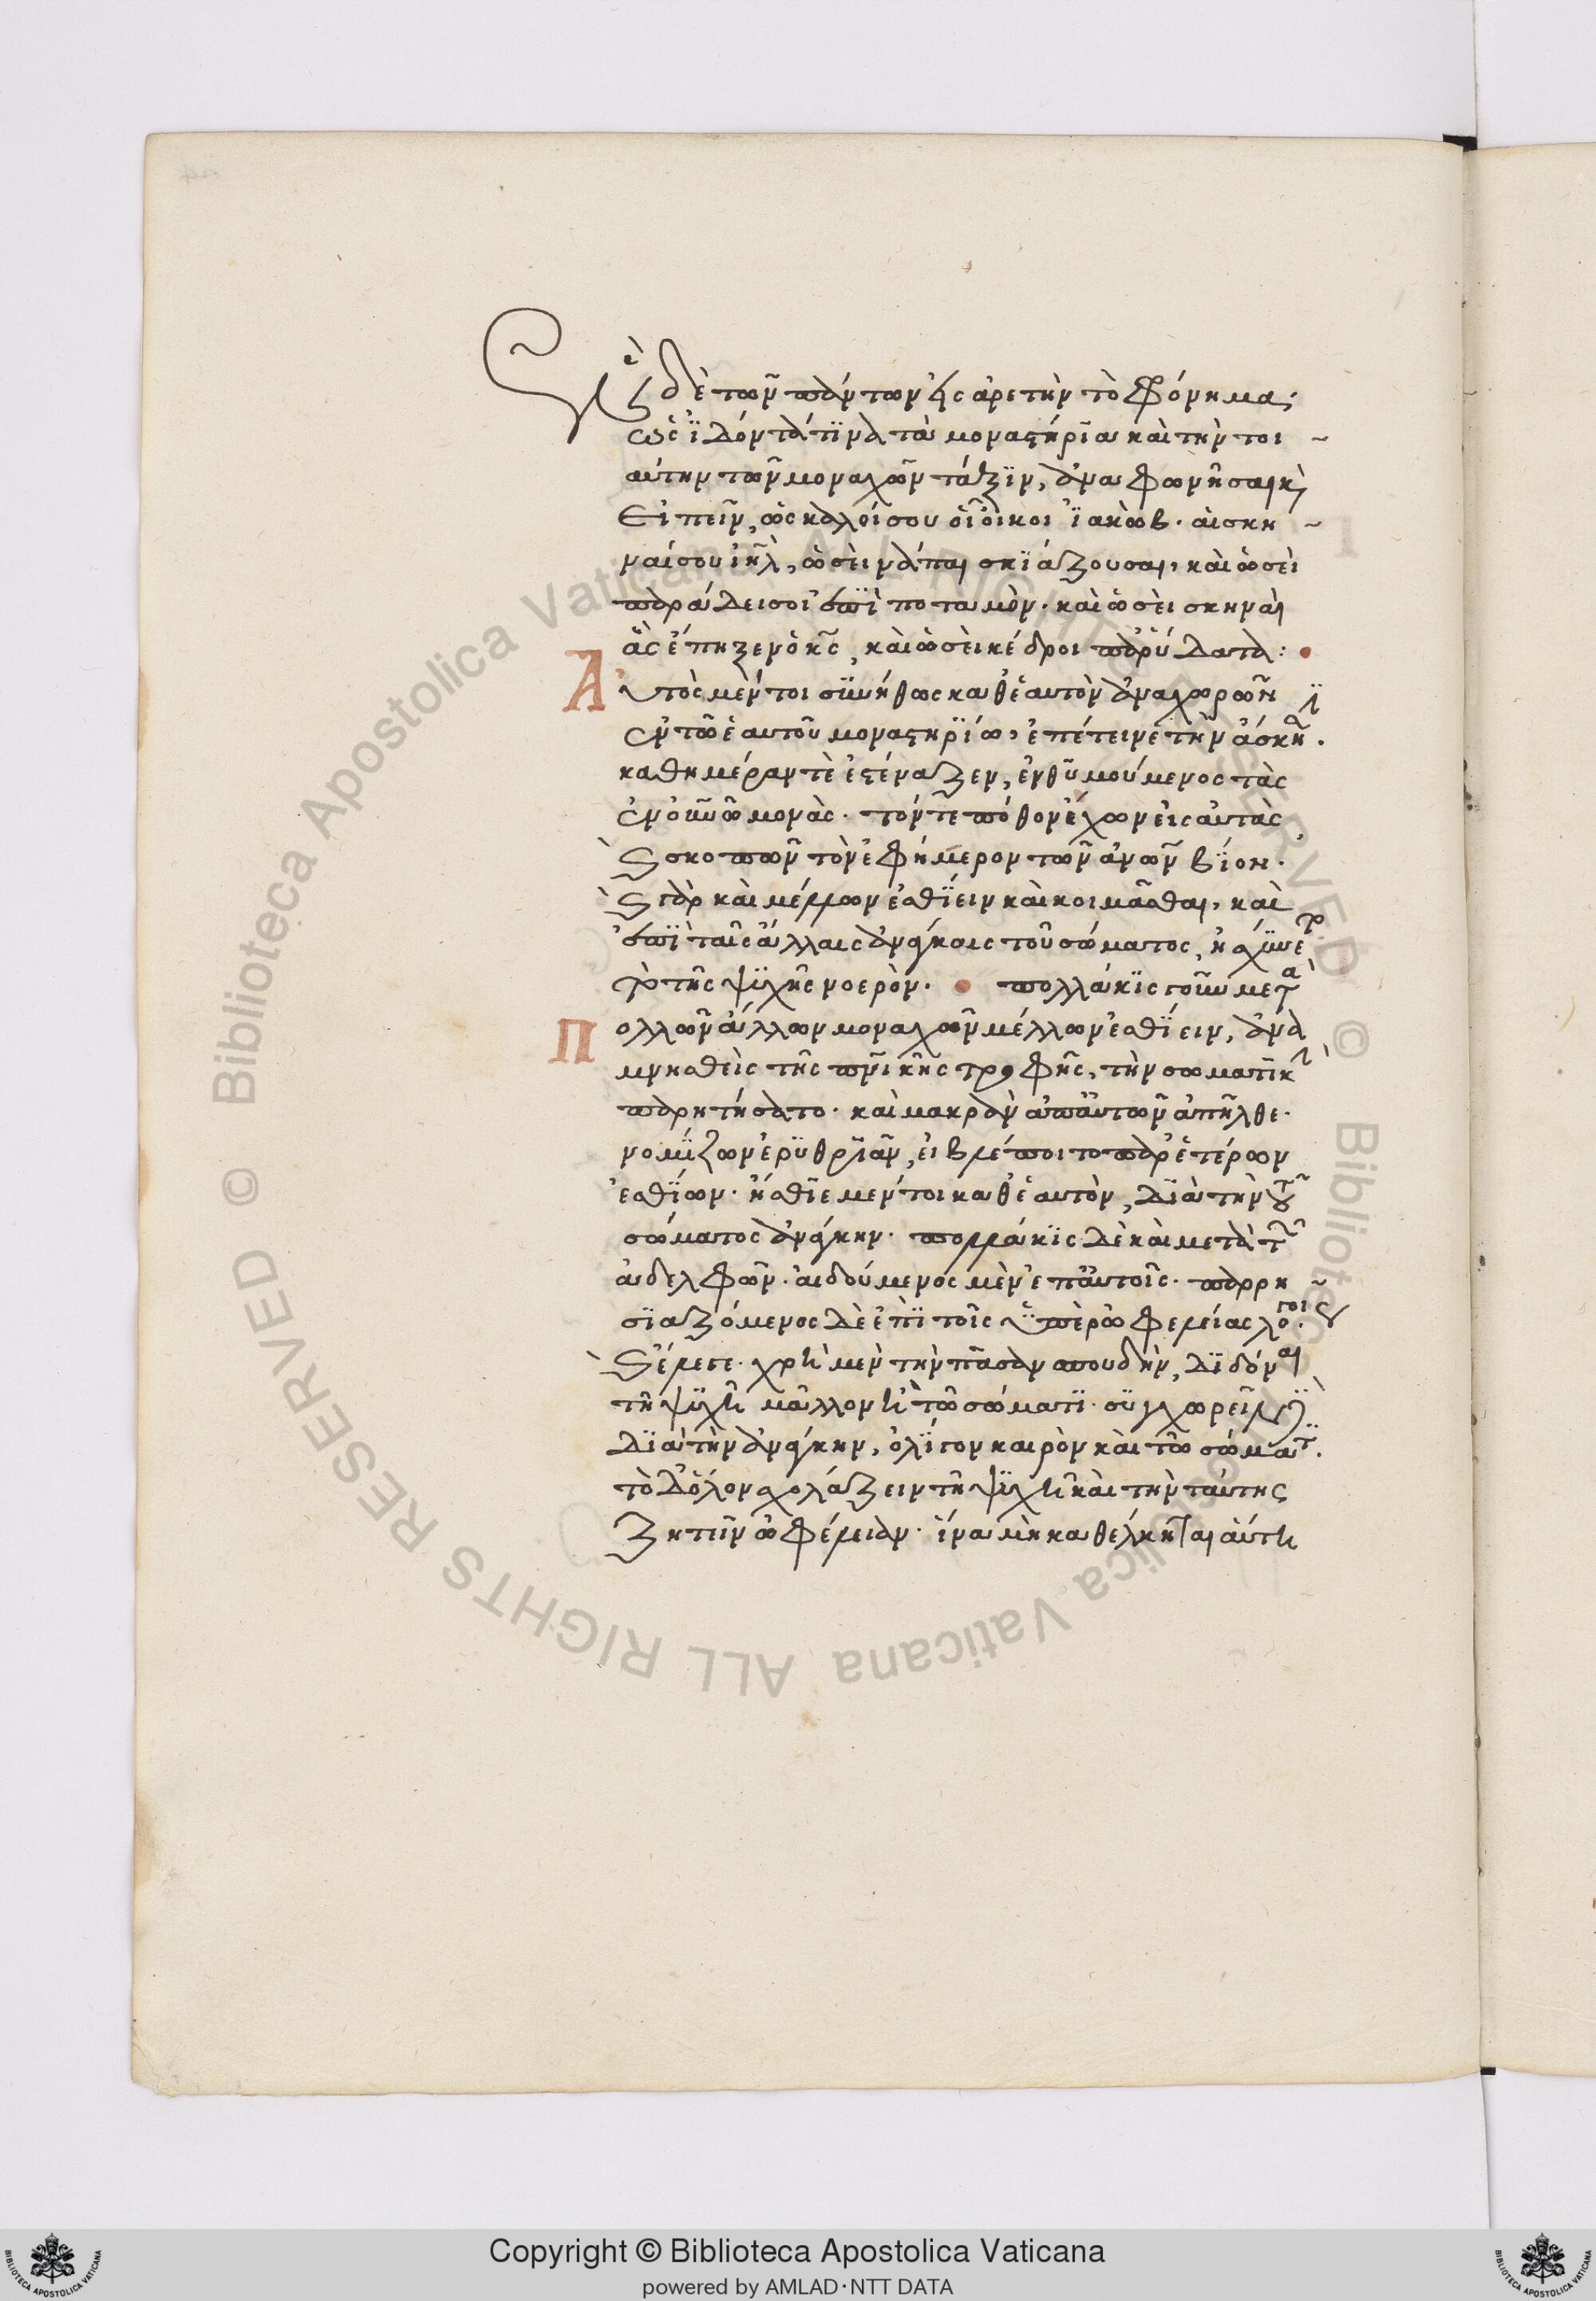 ἓν δὲ τῶν πάντων εἰς ἀρετὴν τὸ φρόνημα·
ὡς ἰδόντά τινα τὰ μοναστήρια καὶ τὴν τοι
αύτην τῶν μοναχῶν τάξιν, ἀναφωνῆσαι κ(αὶ)
εἰπεῖν, ὡς καλοί σου οἱ οἶκοι ἰακώβ. αἱ σκη
ναί σου ἰηλ, ὡσεὶ νάπαι σκιάζουσαι, καὶ ὡσεὶ
παράδεισοι ἐπὶ ποταμὸν. καὶ ὡσεὶ σκηναὶ
ἃς ἔπηξεν ὁ κς, καὶ ὡσεὶ κέδροι παρ' ὕδατα:
Αὐτὸς μέντοι συνήθως καθ' ἑαυτὸν ἀναχωρῶν
ἐν τῶ ἑαυτοῦ μοναστηρίω, ἐπέτεινε τὴν ἄσκησιν.
καθημέραν τὲ ἐστέναζεν, ἐνθυμούμενος τὰς
ἐν οὐνῶ μονὰς. τόν τε πόθον ἔχων εἰς αὐτὰς,
(καὶ) σκοπῶν τὸν ἐφήμερον τῶν ἀνῶν βίον.
(καὶ) γὰρ καὶ μέλλων ἐσθίειν καὶ κοιμᾶσθαι, καὶ
ἐπὶ ταῖς ἄλλαις ἀνάγκαις τοῦ σώματος, ἠσχύνετο
τὸ τῆς ψυχῆς νοερὸν. πολλάκις γοῦν μετὰ
Πολλῶν ἄλλων μοναχῶν μέλλων ἐσθίειν, ἀνα
μνησθεὶς τῆς πνικῆς τροφῆς, τὴν σωματικὴν
παρητήσατο. καὶ μακρὰν ἀπ' αὐτῶν ἀπῆλθε.
νομίζων ἐρυθριᾶν, εἰ βλέποιτο παρ' ἑτέρων
ἐσθίων. ἤσθιε μέντοι καθ' ἑαυτὸν, διὰ τὴν τοῦ
σώματος ἀνάγκην. πολλάκις δὲ καὶ μετὰ τῶν
ἀδελφῶν. αἰδούμενος μὲν ἐπ' αὐτοῖς. παρρη
σιαζόμενος δὲ ἐπὶ τοῖς ὑπὲρ ὠφελείας λόγοις
(καὶ) ἔλεγε. χρὴ μὲν τὴν πᾶσαν σπουδὴν, διδόναι
τῆ ψυχῆ μᾶλλον ἢ τῶ σώματι. συγχωρεῖν μὲν
διὰ τὴν ἀνάγκην, ὀλίγον καιρὸν καὶ τῶ σώματι.
τὸ δ' ὅλον σχολάζειν τῆ ψυχῆ καὶ τὴν ταύτης
ζητεῖν ὠφέλειαν. ἵνα μὴ καθέλκηται αὐτὴ
Copyright © Biblioteca Apostolica Vaticana
powered by AMLAD·NTT DATA